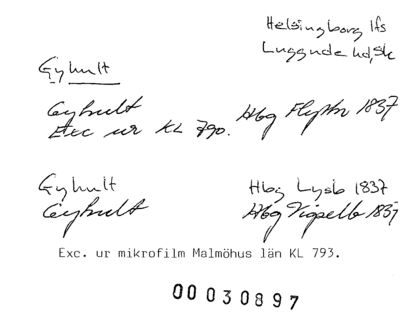 Helsingborg lfs
Luggude hd, Sk
Gyhult
Gyhult Hbg Flyttn 1837
Exc ur KL 790.
Gyhult Hbg Lysb 1837
Gyhult Hbg Vigselb 1837
Exc. ur mikrofilm Malmöhus län KL 793.
00030897